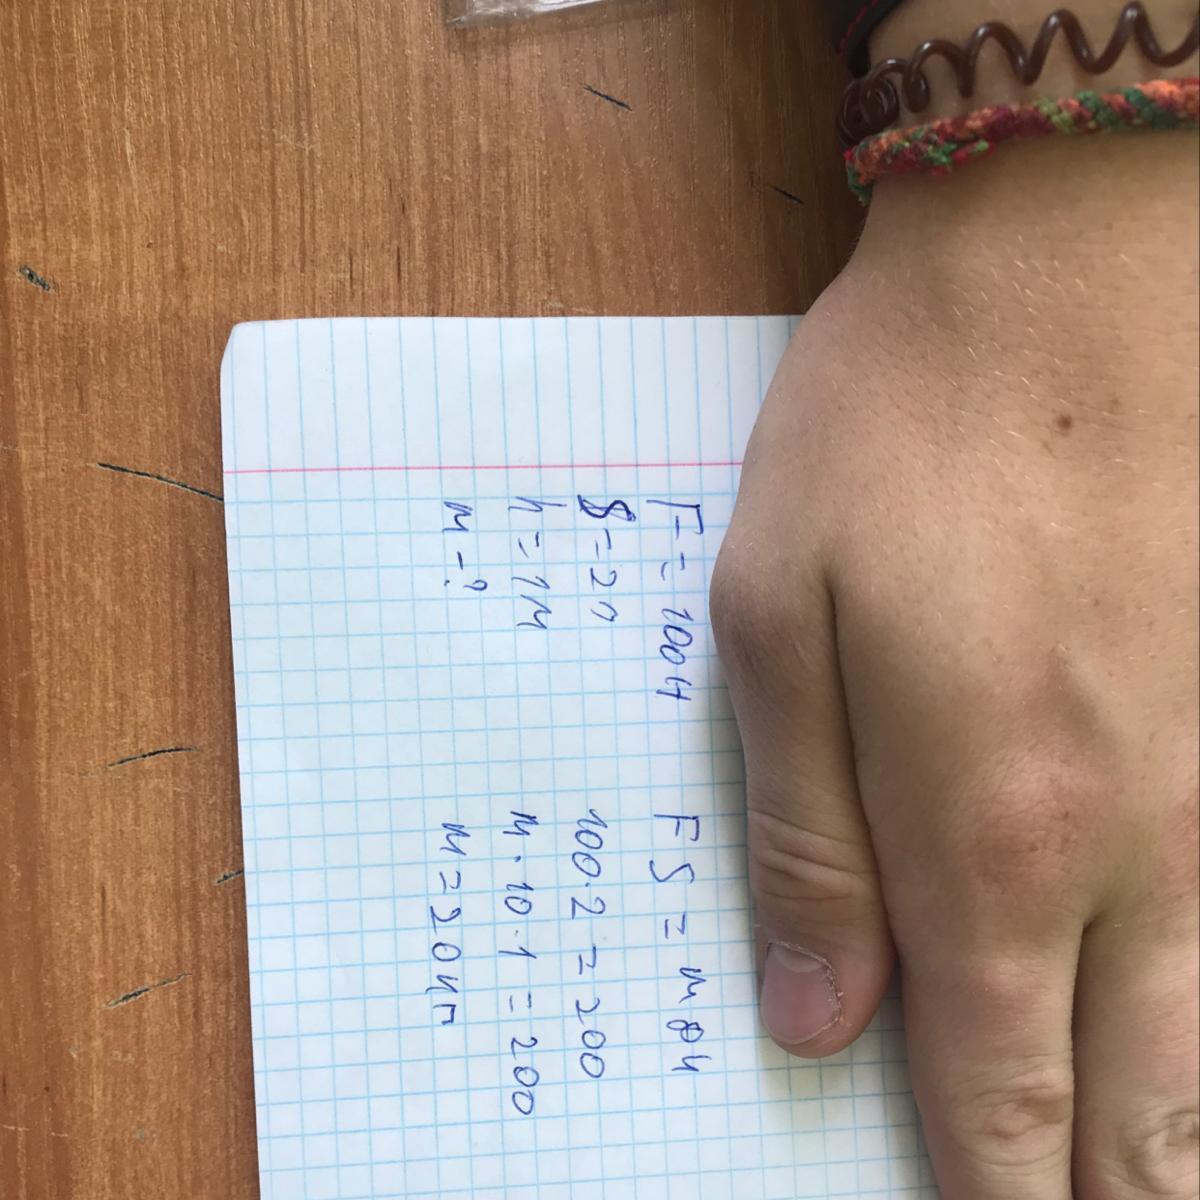 F = 100н
S = 2м
h = 1м
м - ?
FS = mgh
100·2 = 200
м·10·1 = 200
м = 20кг